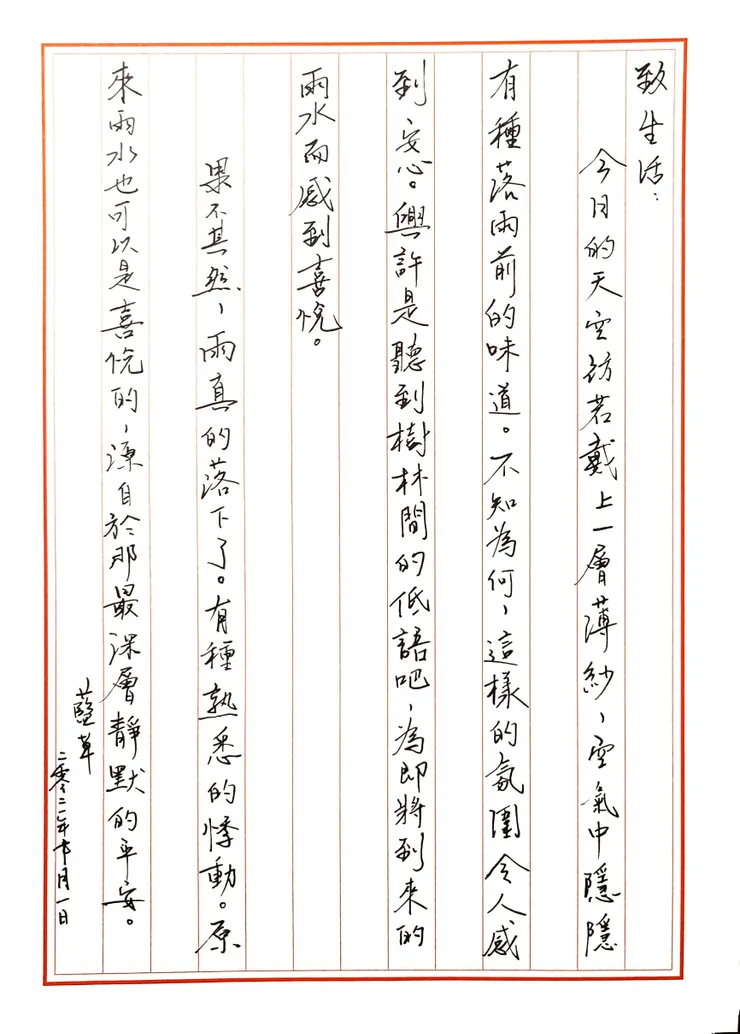 致生活：
今日的天空彷若戴上一層薄紗，空氣中隱隱
有種落雨前的味道。不知為何，這樣的氛圍令人感
到安心。興許是聽到樹林間的低語吧，為即將到來的
雨水而感到喜悅。
果不其然，雨真的落下了。有種熟悉的悸動。原
來雨水也可以是喜悅的，源自於那最深層靜默的平安。
草
二零二一年十月一日